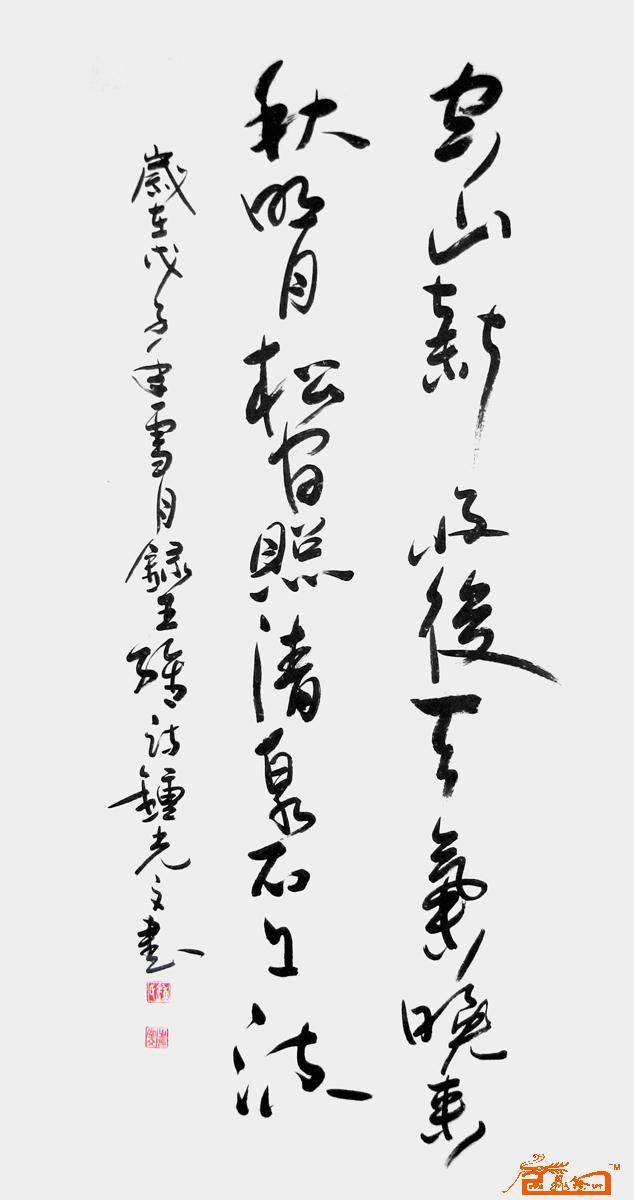 空山新雨後天氣晚來
秋明月松間照清泉石上流
歲在戊子雪月錄王維詩鍾光文書